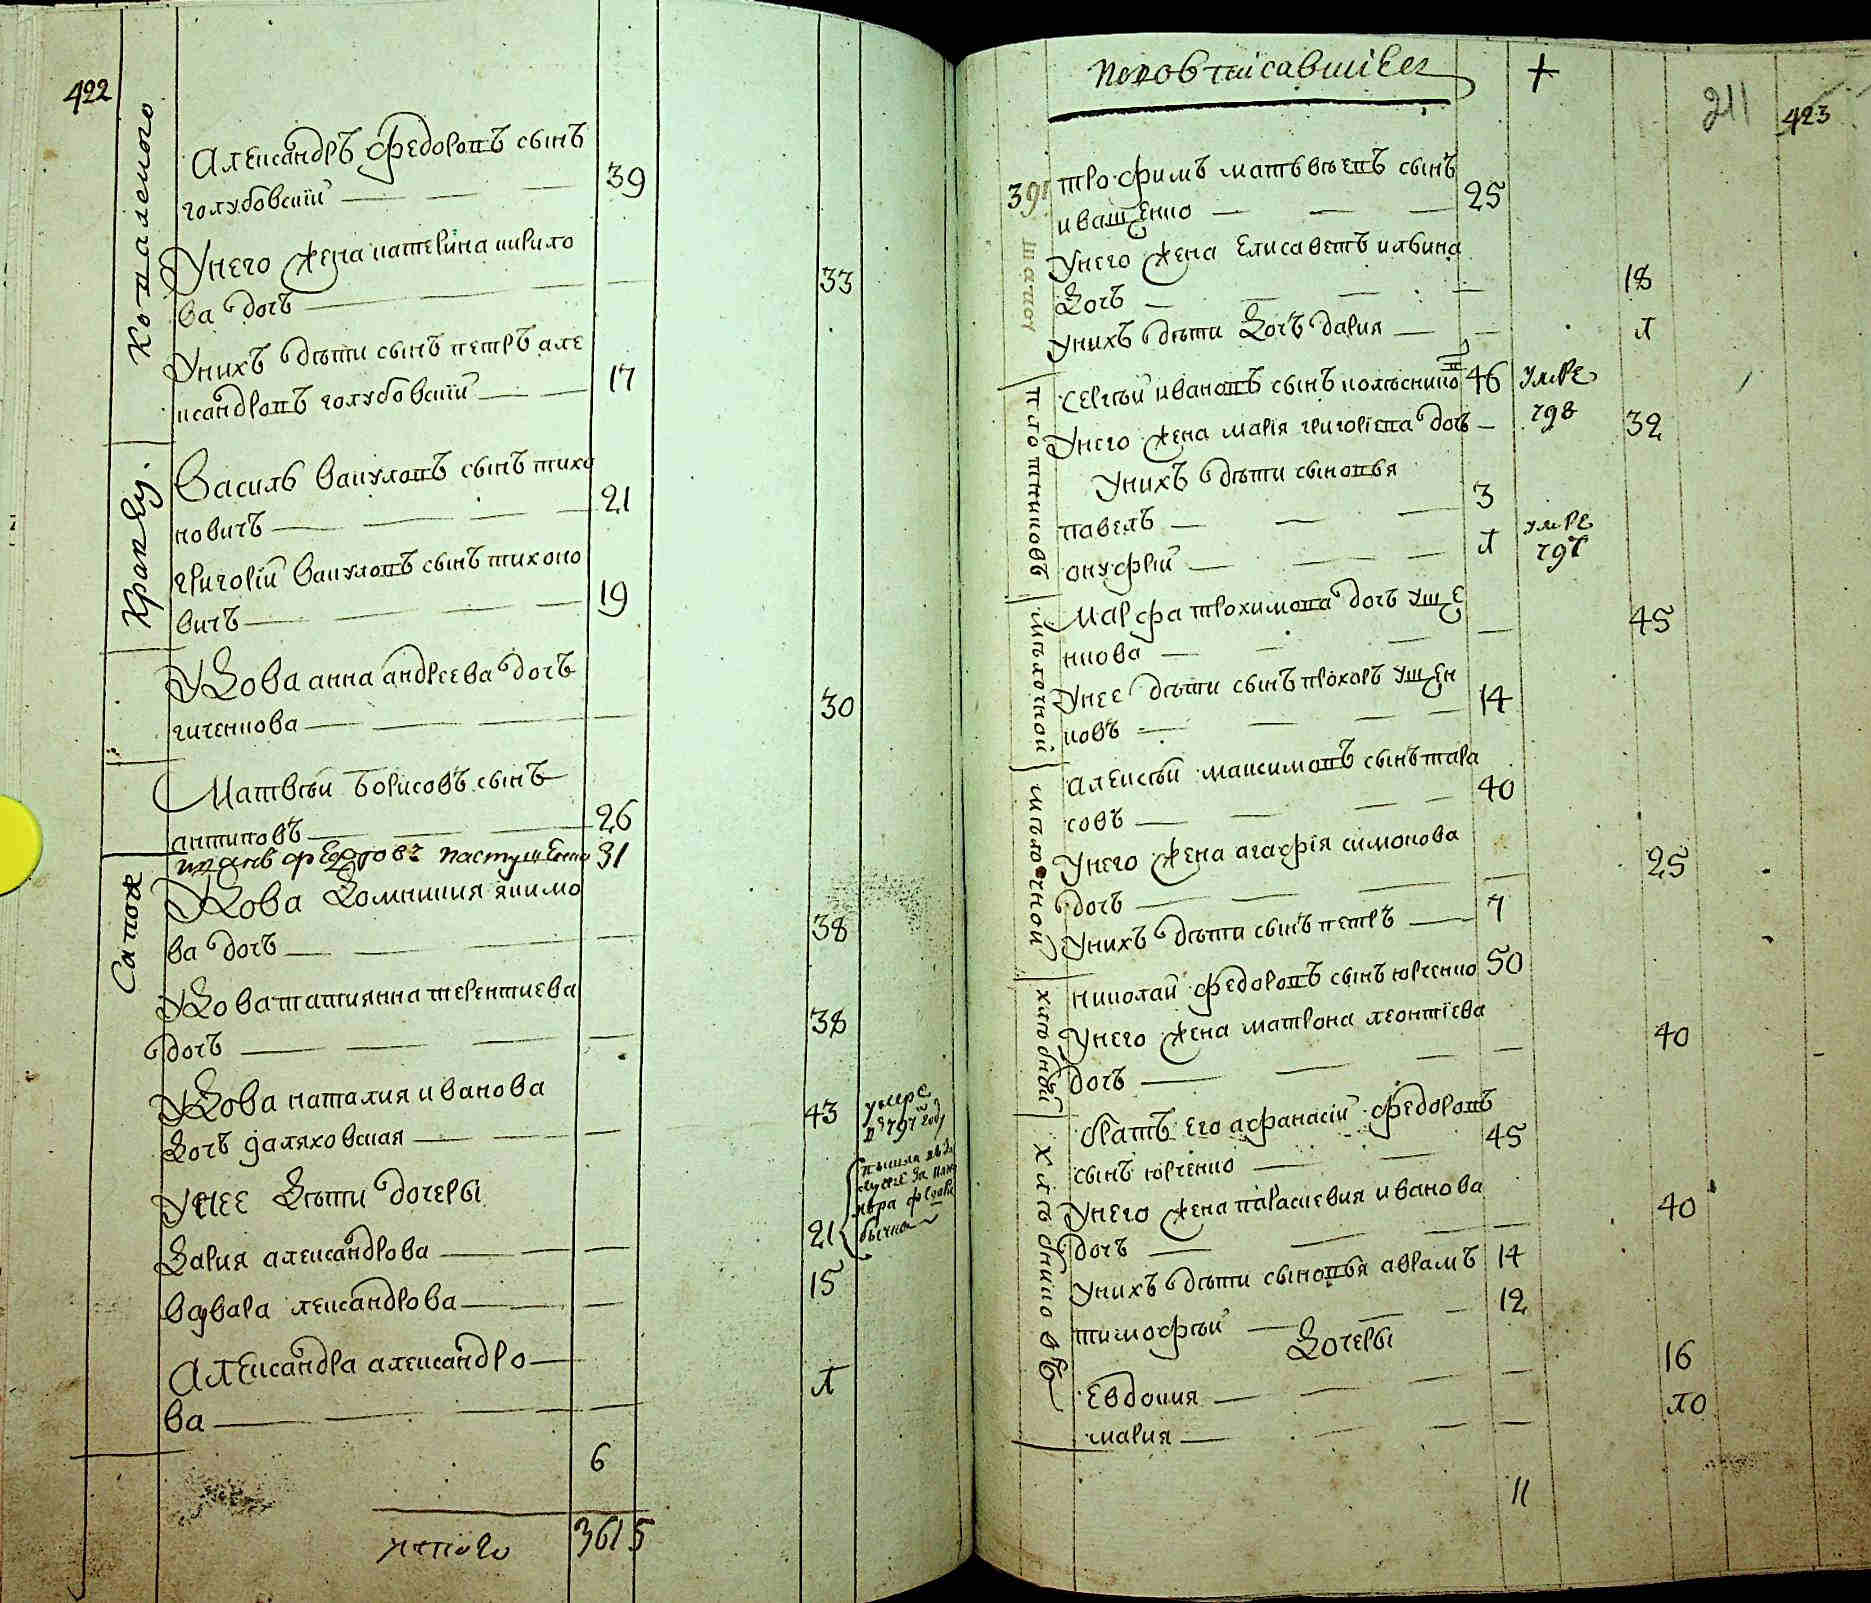 422
Копалемого
Александръ федоровъ сынъ
голубовский 39
Унего жена катерина кирило
ва дочъ 33
Унихъ дѣти сынъ петръ але
ксандровъ голубовский 17
Василь вакуловъ сынъ тихо
новичъ 21
григорий вакуловъ сынъ тихоно
вичъ 19
Удова анна андреева дочъ
гиченкова 30
Матвѣй борисовъ сынъ
антиповъ 26
иванъ федоровъ пастушенко 31
Сапож
Удова домникия якимо
ва дочъ 38
Удова татиянна терентиева
дочъ 38
Удова наталия иванова
дочъ даляховская 43 умре
Унее дѣти дочеры
дария александрова 21
варвара лександрова 15
Александра александро
ва л
6
итого 3615
новопписавшиеся +
211 423
391 трофимъ матьвѣевъ сынъ
иващенко 25
Унего жена елисаветъ илвина
дочъ 18
Унихъ дѣти дочъ дария л
плотниковъ
сергѣй ивановъ сынъ колѣснико 46 умре
798
Унего жена мария григориева дочъ 32
Унихъ дѣти сыновья
павелъ 3
онуфрий л умре
797
мѣлочной
Марфа трохимова дочъ уще
нкова 45
Унее дѣти сынъ прохоръ ущен
ковъ 14
мѣлочной
алексѣй максимовъ сынъ тара
совъ 40
Унего жена агафия симонова
дочъ 25
Унихъ дѣти сынъ петръ 7
николай федоровъ сынъ юрченко 50
Унего жена матрона леонтиева
дочъ 40
братъ его афанасий федоровъ
сынъ юрченко 45
Унего жена параскевия иванова
дочъ 40
Унихъ дѣти сыновья аврамъ 14
тимофѣй 12
дочеры
евдокия 16
мария л0
11